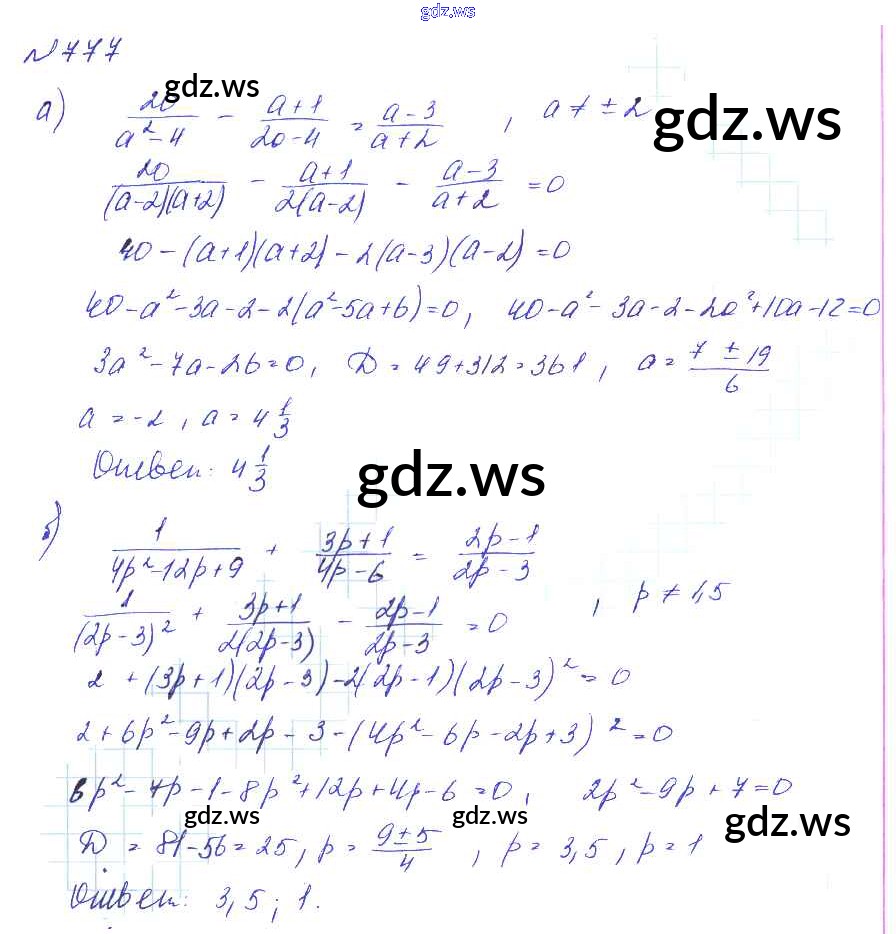 gdz.ws
№777
gdz.ws
а) 20/(a²-4) - (a+1)/(2a-4) = (a-3)/(a+2) , a ≠ ±2
gdz.ws
20/((a-2)(a+2)) - (a+1)/(2(a-2)) - (a-3)/(a+2) = 0
40-(a+1)(a+2)-2(a-3)(a-2)=0
40-a²-3a-2-2(a²-5a+6)=0, 40-a²-3a-2-2a²+10a-12=0
3a²-7a-26=0, D=49+312=361, a=(7±19)/6
a=-2, a=4 1/3
Ответ: 4 1/3
gdz.ws
б) 1/(4p²-12p+9) + (3p+1)/(4p-6) = (2p-1)/(2p-3)
1/(2p-3)² + (3p+1)/(2(2p-3)) - (2p-1)/(2p-3) = 0 , p ≠ 1,5
2+(3p+1)(2p-3)-2(2p-1)(2p-3)²=0
2+6p²-9p+2p-3-(4p²-6p-2p+3)²=0
6p²-7p-1-8p²+12p+4p-6=0, 2p²-9p+7=0
gdz.ws gdz.ws gdz.ws
D=81-56=25, p=(9±5)/4, p=3,5, p=1
Ответ: 3,5; 1.